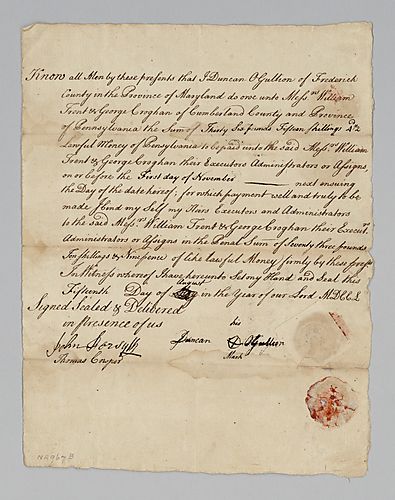 Know all Men by these presents that I Duncan OGullion of Frederick
County in the Province of Maryland do owe unto Messrs William
Trent & George Croghan of Cumberland County and Province
of Pennsylvania the Sum of Thirty Six pounds Fifteen Shillings
Lawful Money of Pensylvania to be paid unto the said Messrs William
Trent & George Croghan their Executors Administrators or Assigns,
on or before the First day of November next ensuing
the Day of the date hereof, for which payment well and truly to be
made I bind my Self my Heirs Executors and Administrators
to the said Messrs William Trent & George Croghan their Execurs
Administrators or Assigns in the Penal Sum of Seventy three pounds
Ten Shillings & Ninepence of like lawful Money firmly by these
In Witness whereof I have hereunto Set my Hand and Seal this
Fifteenth Day of August in the Year of our Lord MDCCL
Signed Sealed & Delivered
in presence of us
his
Duncan OGullion
Mark
John
Thomas Cooper